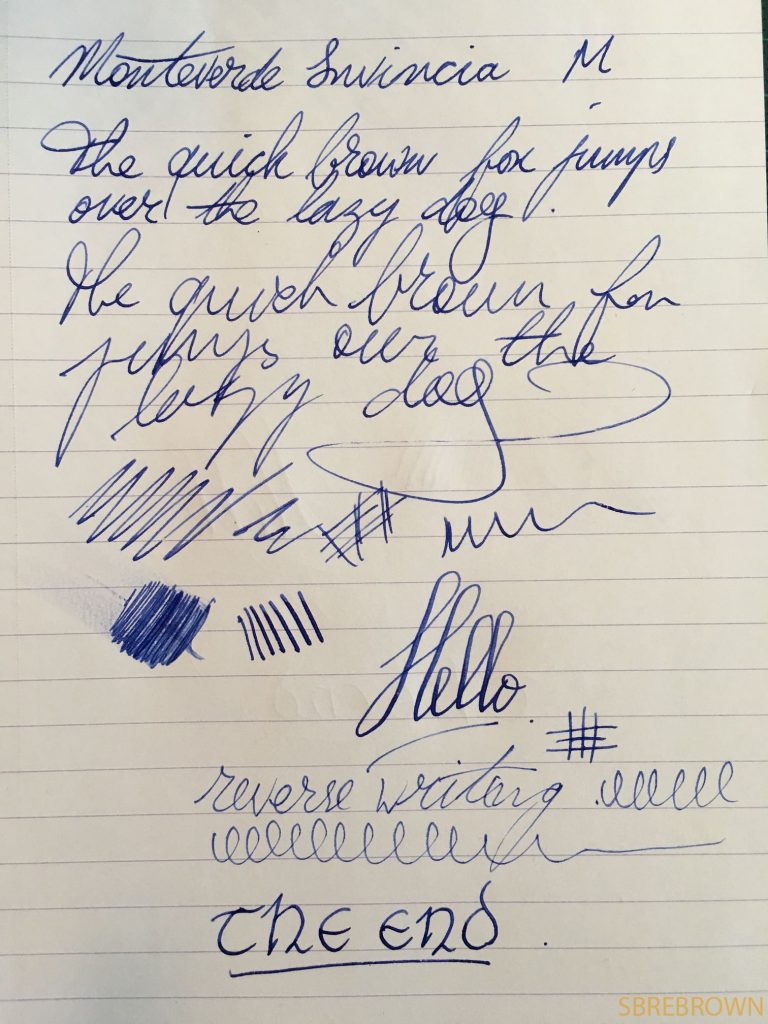 Monteverde Invincia M
The quick brown fox jumps
over the lazy dog.
The quick brown fox
jumps over the
lazy dog
Hello.
reverse writing.
THE END.
SBREBROWN